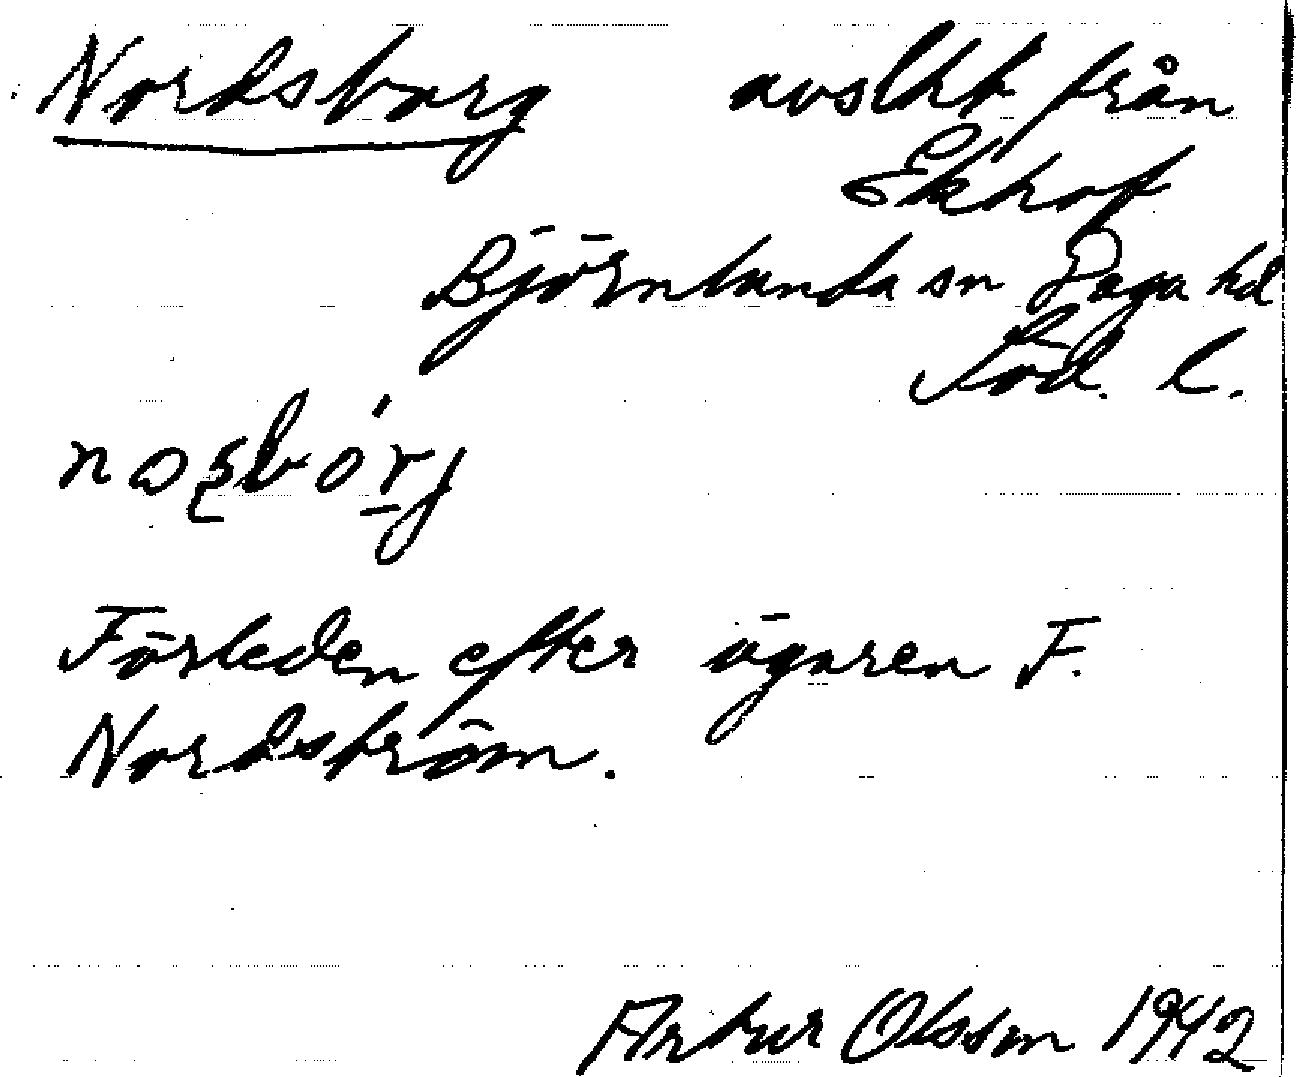 Nordsborg avsltt från
Ekhof
Björnlunda sn Daga hd
Söd. l.
Förleden efter ägaren F.
Nordström.
Artur Olsson 1942